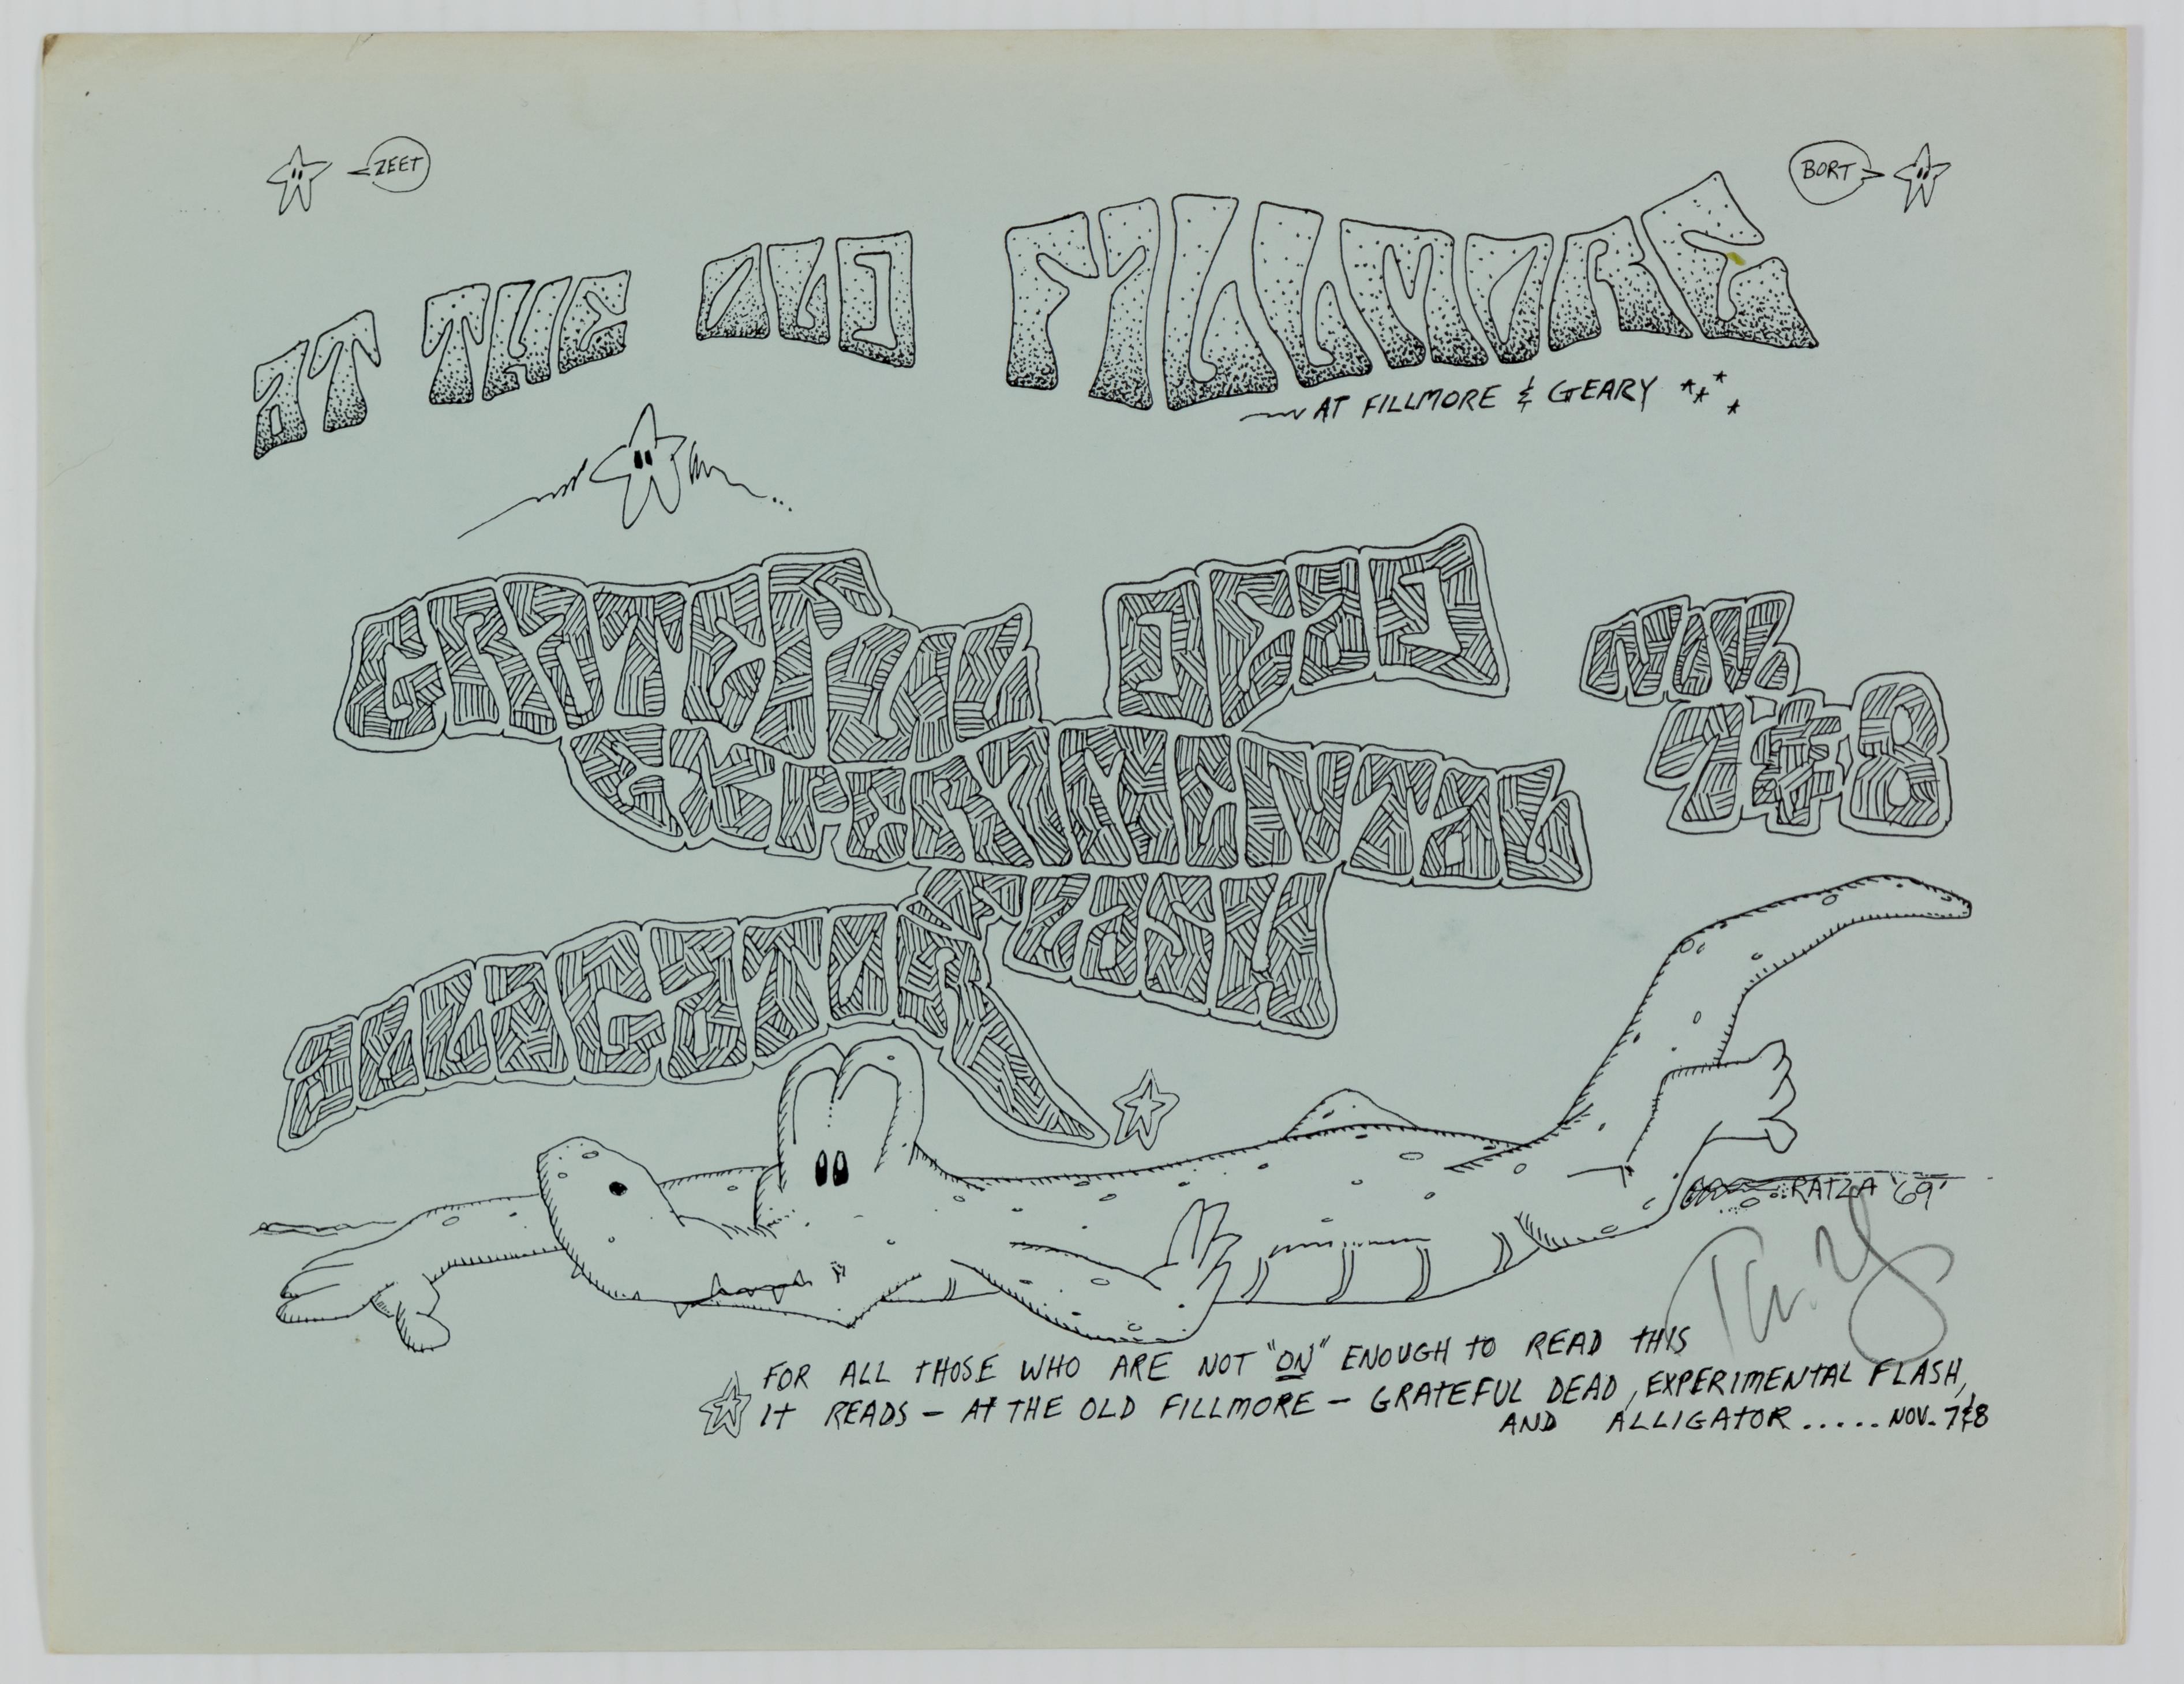 ZEET
BORT
AT THE OLD FILLMORE
AT FILLMORE & GEARY
GRATEFUL DEAD
NOV
7 & 8
EXPERIMENTAL
FLASH
ALLIGATOR
RATZA '69'
FOR ALL THOSE WHO ARE NOT "ON" ENOUGH TO READ THIS
IT READS — AT THE OLD FILLMORE — GRATEFUL DEAD, EXPERIMENTAL FLASH,
AND ALLIGATOR ..... NOV. 7&8